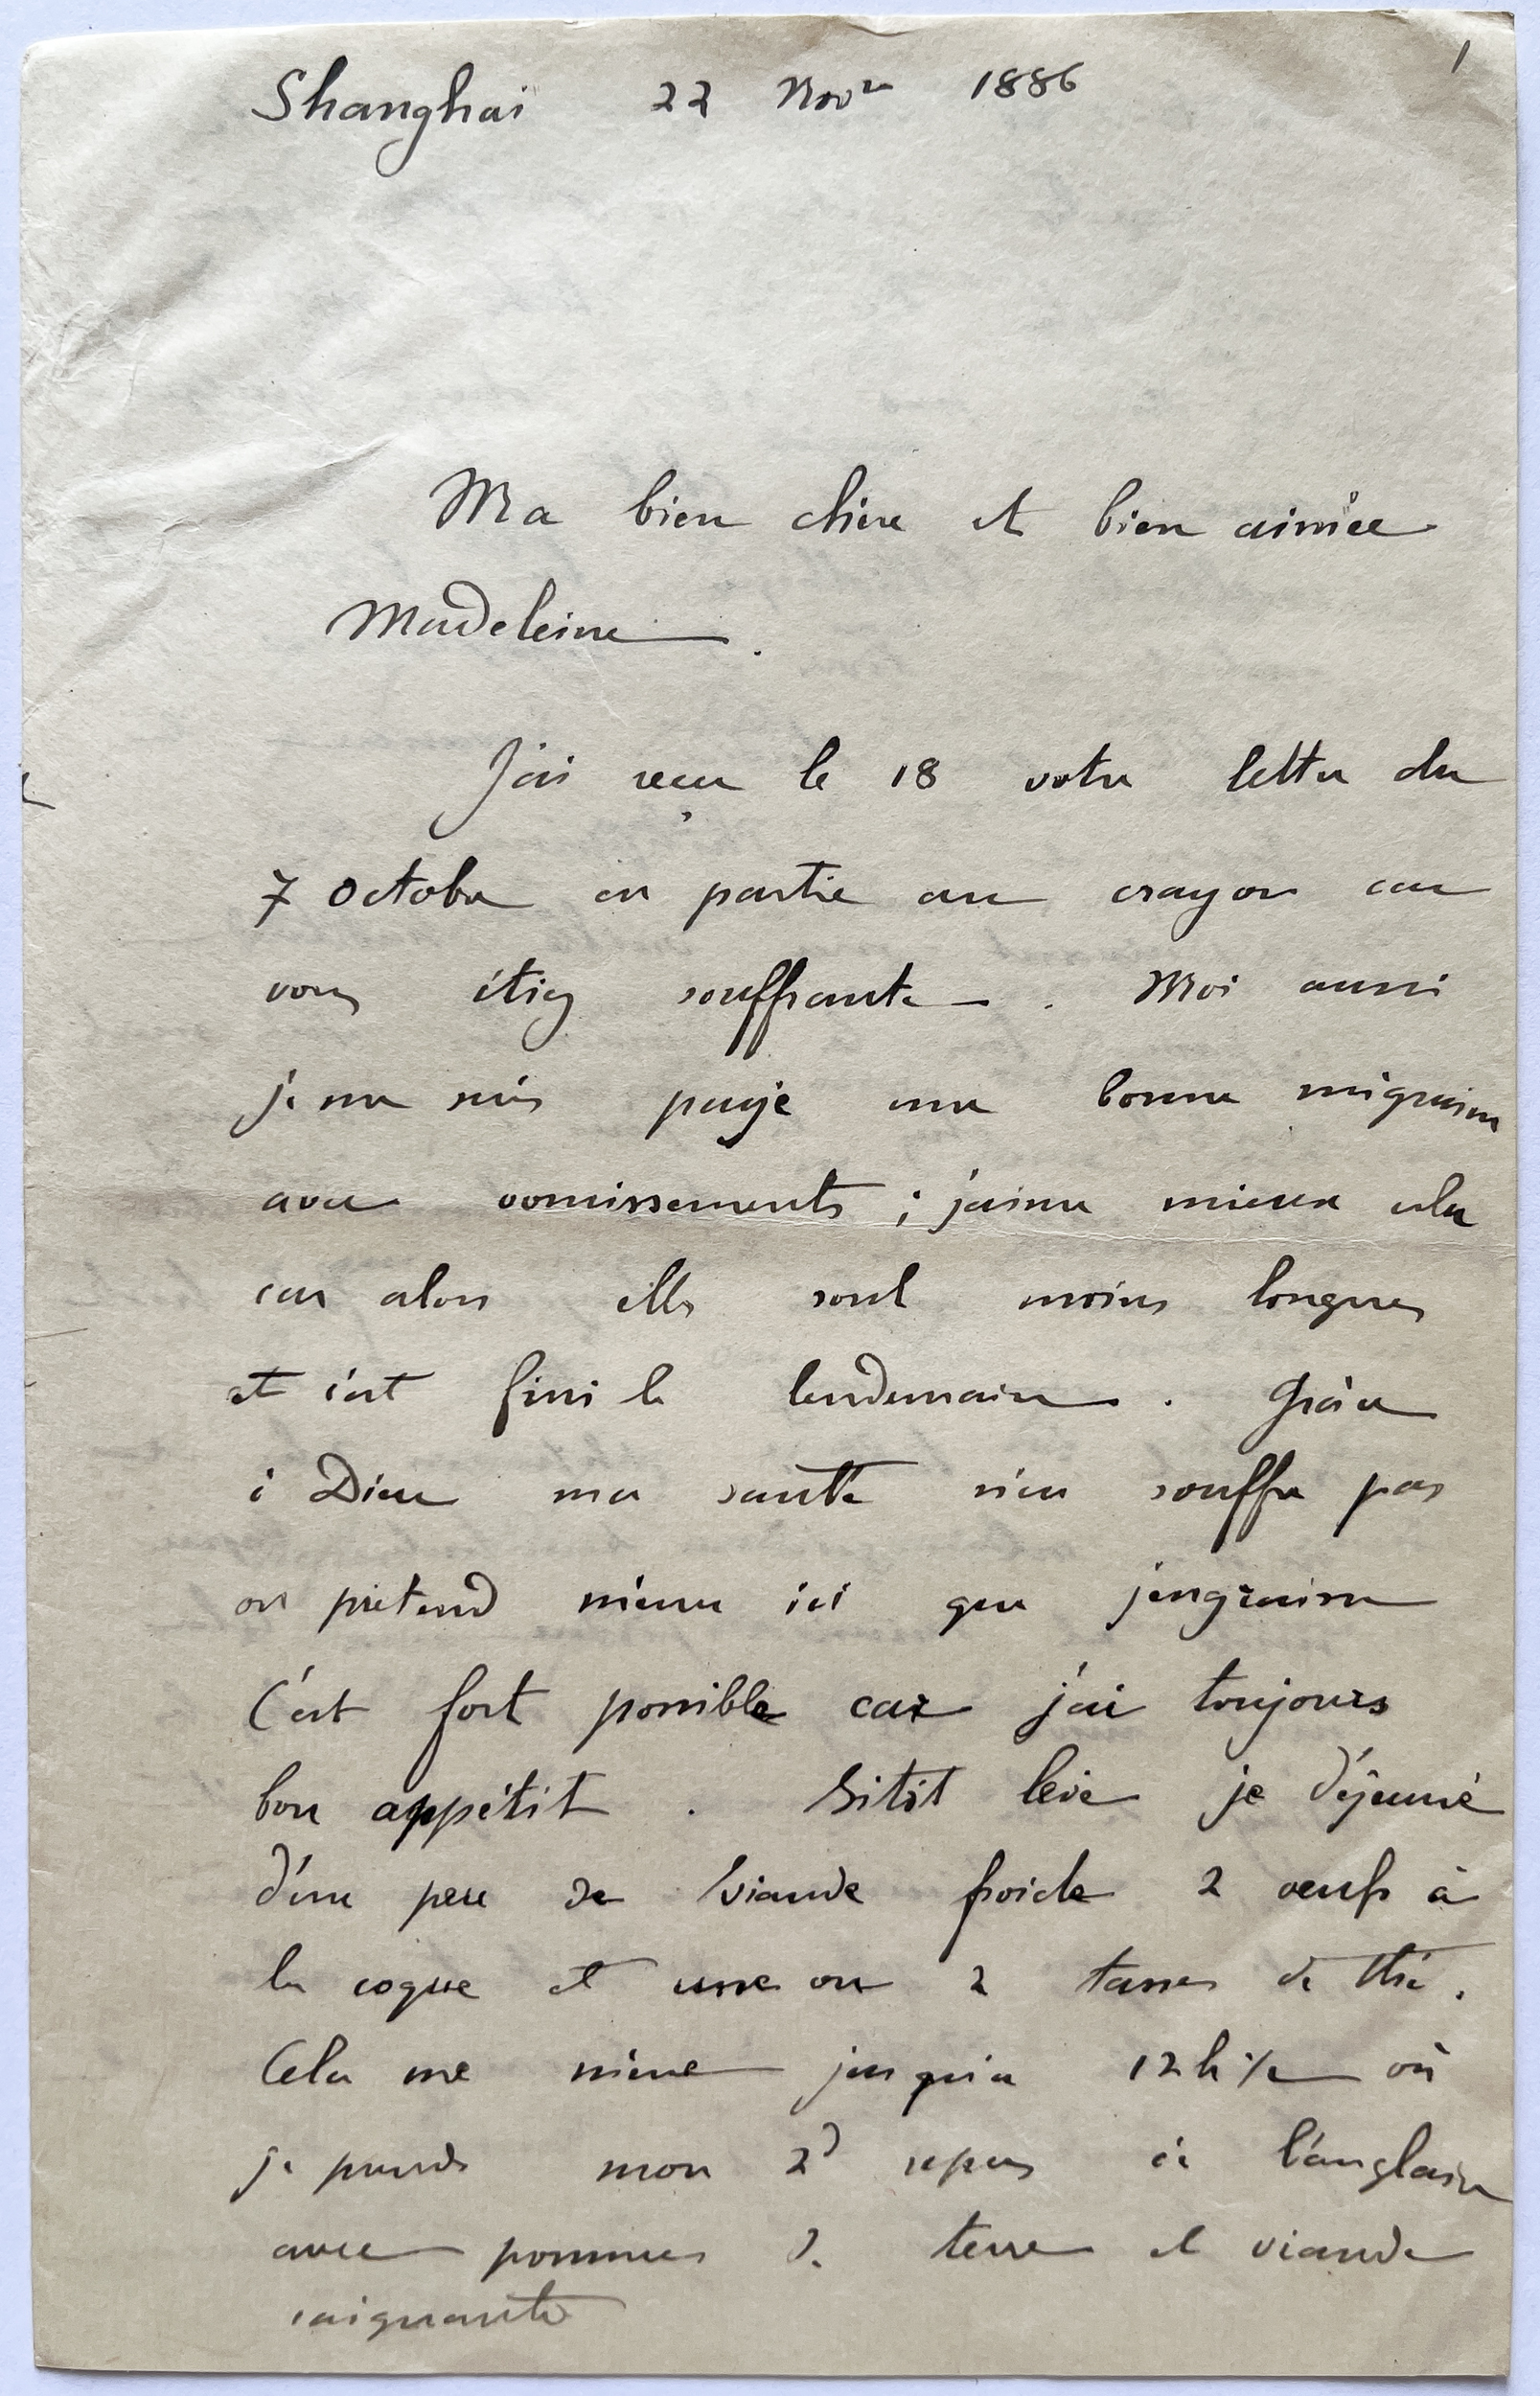 Shanghai 22 Nov<sup>re</sup> 1886 1
Ma bien chère et bien aimée
Madeleine.
J'ai reçu le 18 votre lettre du
7 octobre en partie au crayon car
vous étiez souffrante. Moi aussi
je me suis payé une bonne migraine
avec vomissements ; j'aime mieux cela
car alors elles sont moins longues
et c'est fini le lendemain. Grâce
à Dieu ma santé n'en souffre pas
on prétend même ici que j'engraisse
C'est fort possible car j'ai toujours
bon appétit. Sitôt levé je déjeune
d'un peu de viande froide 2 oeufs à
la coque et une ou 2 tasses de thé.
Cela me mène jusqu'à 12h ½ où
je prends mon 2<sup>d</sup> repas à l'anglaise
avec pommes de terre et viande
saignante